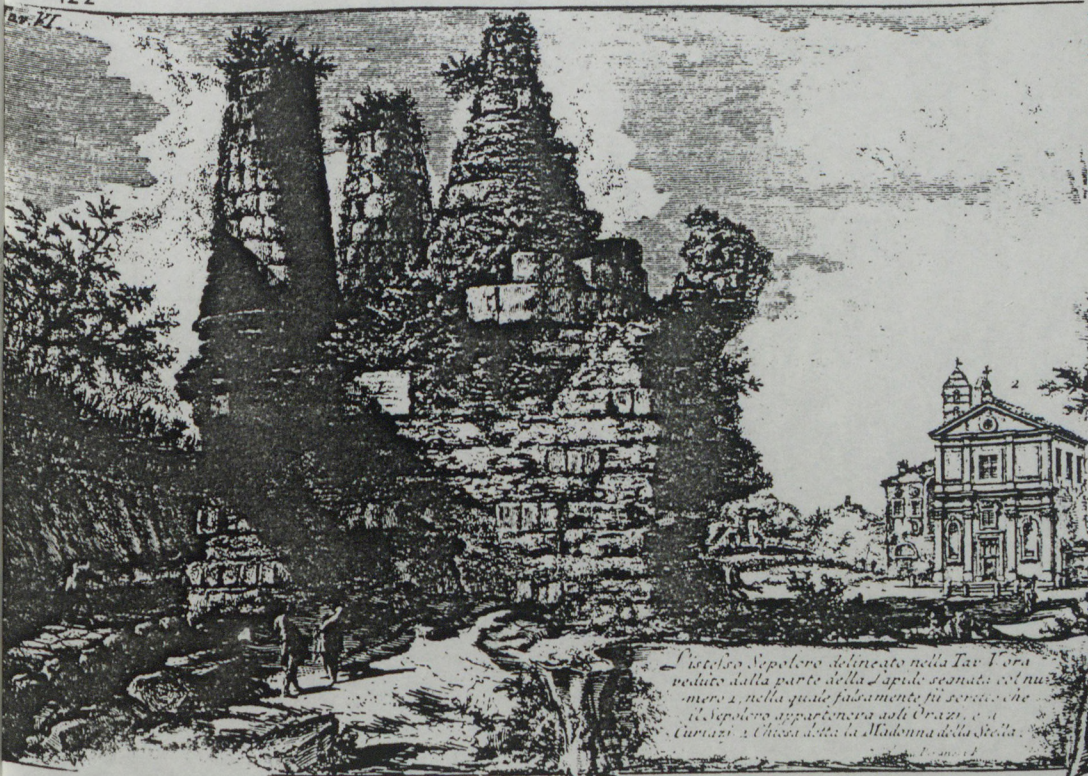 Tav. VI
2
L'istesso Sepolcro delineato nella Tav. V ora
veduto dalla parte della Lapide segnata col nu-
mero 1, nella quale falsamente fù scritto che
il Sepolcro appartenera agli Orazi, e a
Curiazi. 2 Chiesa detta la Madonna della Stella.